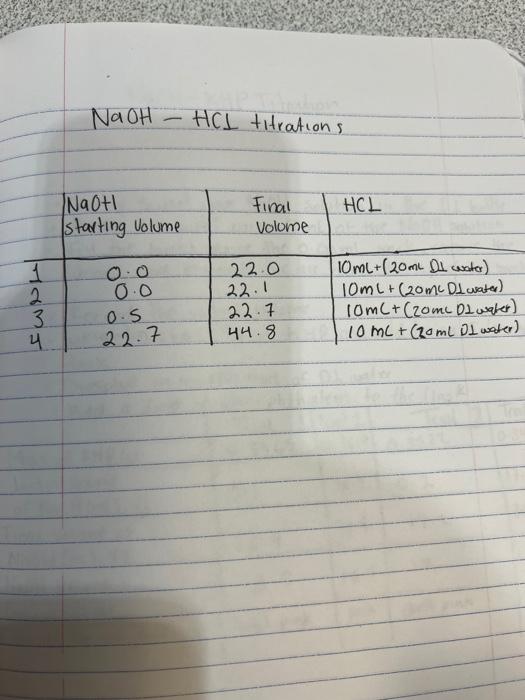 NaOH - HCl titrations
NaOH Final HCL
starting Volume Volume
1 0.0 22.0 10mL+(20mL DI water)
2 0.0 22.1 10mL+(20mL DI water)
3 0.5 22.7 10mL+(20mL DI water)
4 22.7 44.8 10mL+(20mL DI water)